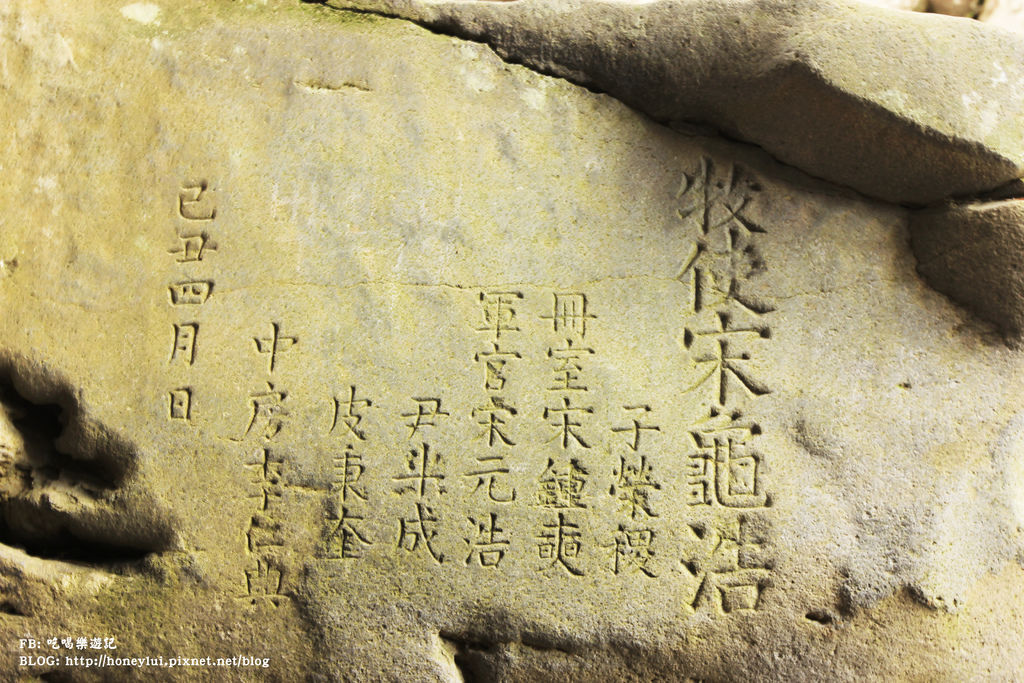 牧使宋龜浩
子榮稷
冊室宋鍾奭
軍官宋元浩
尹斗成
皮秉奎
中房李仁典
己丑四月日
FB: 吃喝樂遊記
BLOG: http://honeylui.pixnet.net/blog